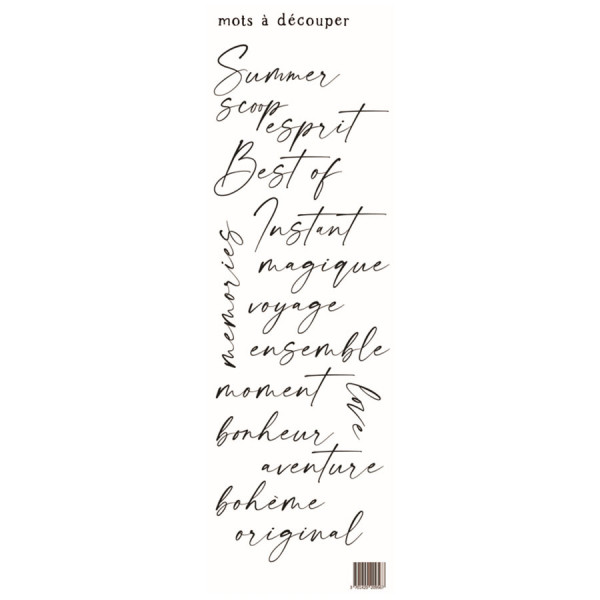 mots à découper
Summer
scoop
esprit
Best of
Instant
memories
magique
voyage
ensemble
moment
love
bonheur
aventure
bohème
original